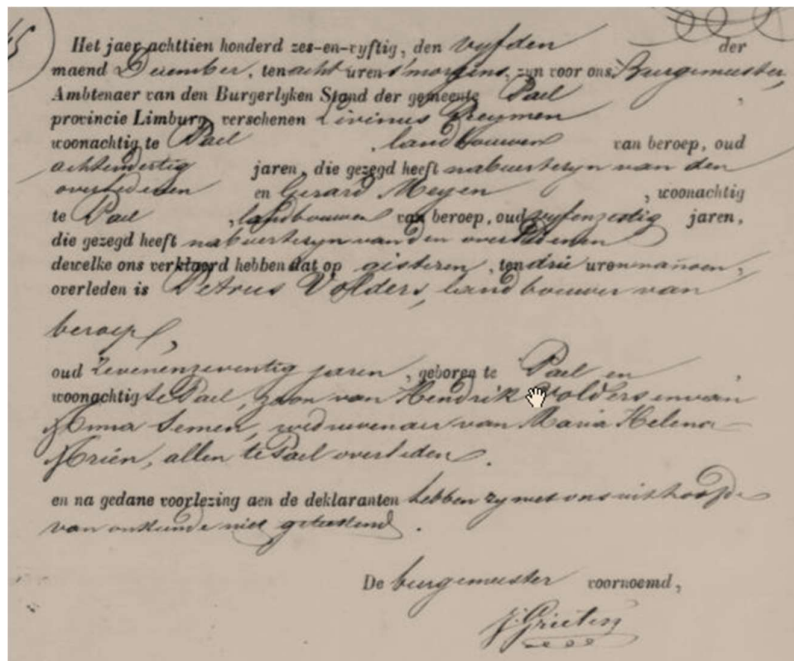 45
Het jaer achttien honderd zes-en-vyftig, den vyfden der
maend December, ten acht uren s'morgens, zyn voor ons, Burgemeester,
Ambtenaer van den Burgerlyken Stand der gemeente Pael,
provincie Limburg, verschenen Livinus
woonachtig te Pael, landbouwer van beroep, oud
achtendertig jaren, die gezegd heeft nabuer te zyn van den
overledenen en Gerard Meyen, woonachtig
te Pael, landbouwer van beroep, oud vyfenzestig jaren,
die gezegd heeft nabuer te zyn van den overledenen
dewelke ons verklaerd hebben dat op gisteren, ten drie uren
overleden is Petrus Volders, landbouwer van
beroep,
oud zevenenzeventig jaren, geboren te Pael en
woonachtig te Pael, zoon van Hendrik Volders en van
Anna Semen, weduwenaer van Maria Helena
Ariën, allen te Pael overleden.
en na gedane voorlezing aen de deklaranten hebben zy met ons uit hoofde
van onkunde niet geteekend.
De burgemeester voornoemd,
J. Grieten